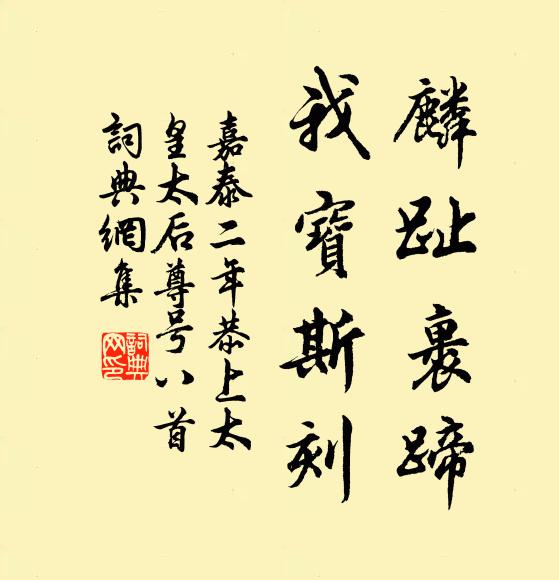 麟趾裹蹄
我寶斯刻
嘉泰二年恭上太
皇太后尊号八首
詞典網集
詞典
网印